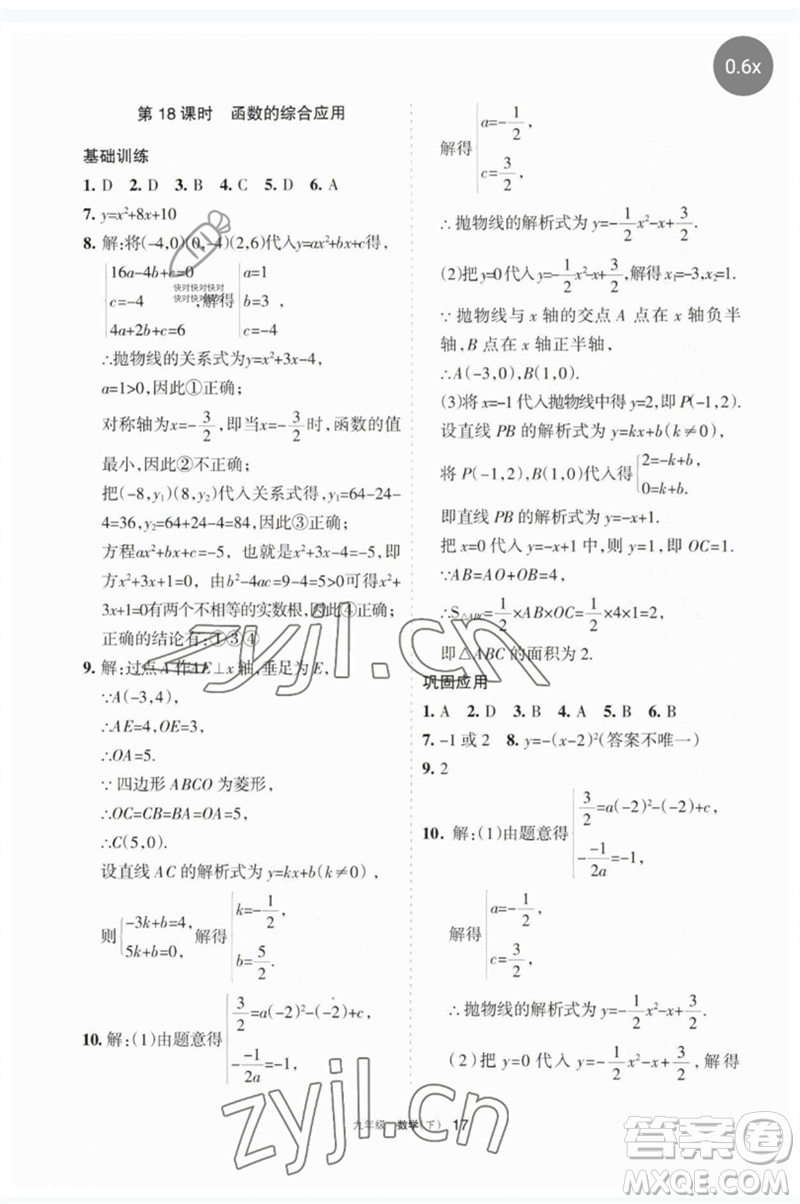 0.6x
第 18 课时　函数的综合应用
基础训练
1. D　2. D　3. B　4. C　5. D　6. A
7. y=x²+8x+10
8. 解:将(-4,0)(0,-4)(2,6)代入y=ax²+bx+c得,
16a-4b+c=0　a=1
快对快对快对
c=-4　,解得　b=3　,
快对快对快对
4a+2b+c=6　c=-4
∴抛物线的关系式为y=x²+3x-4,
a=1>0,因此①正确;
对称轴为x=-3/2,即当x=-3/2时,函数的值
最小,因此②不正确;
把(-8,y₁)(8,y₂)代入关系式得,y₁=64-24-
4=36,y₂=64+24-4=84,因此③正确;
方程ax²+bx+c=-5,也就是x²+3x-4=-5,即
方x²+3x+1=0,由b²-4ac=9-4=5>0可得
x²+3x+1=0有两个不相等的实数根,因此④正确;
正确的结论有:①③④
9. 解:过点A作AE⊥x轴,垂足为E,
∵A(-3,4),
∴AE=4,OE=3,
∴OA=5.
∵四边形ABCO为菱形,
∴OC=CB=BA=OA=5,
∴C(5,0).
设直线AC的解析式为y=kx+b(k≠0),
则{-3k+b=4, 5k+b=0, 解得{k=-1/2, b=5/2.
10. 解:(1)由题意得{3/2=a(-2)²-(-2)+c, -(-1)/2a=-1,
解得{a=-1/2, c=3/2,
∴抛物线的解析式为 y=-1/2x²-x+3/2.
(2)把y=0代入y=-1/2x²-x+3/2,解得x₁=-3,x₂=1.
∵抛物线与x轴的交点A点在x轴负半
轴,B点在x轴正半轴,
∴A(-3,0),B(1,0).
(3)将x=-1代入抛物线中得y=2,即P(-1,2).
设直线PB的解析式为y=kx+b(k≠0),
将P(-1,2),B(1,0)代入得{2=-k+b, 0=k+b.
即直线PB的解析式为y=-x+1.
把x=0代入y=-x+1中,则y=1,即OC=1.
∵AB=AO+OB=4,
∴S△ABC=1/2×AB×OC=1/2×4×1=2,
即△ABC的面积为2.
巩固应用
1. A　2. D　3. B　4. A　5. B　6. B
7. -1或2　8. y=-(x-2)²(答案不唯一)
9. 2
10. 解:(1)由题意得{3/2=a(-2)²-(-2)+c, -(-1)/2a=-1,
解得{a=-1/2, c=3/2,
∴抛物线的解析式为y=-1/2x²-x+3/2.
(2)把y=0代入y=-1/2x²-x+3/2,解得
九年级 数学(下) 17
zyjl.cn
zyjl.cn
答案圈
MXQE.COM